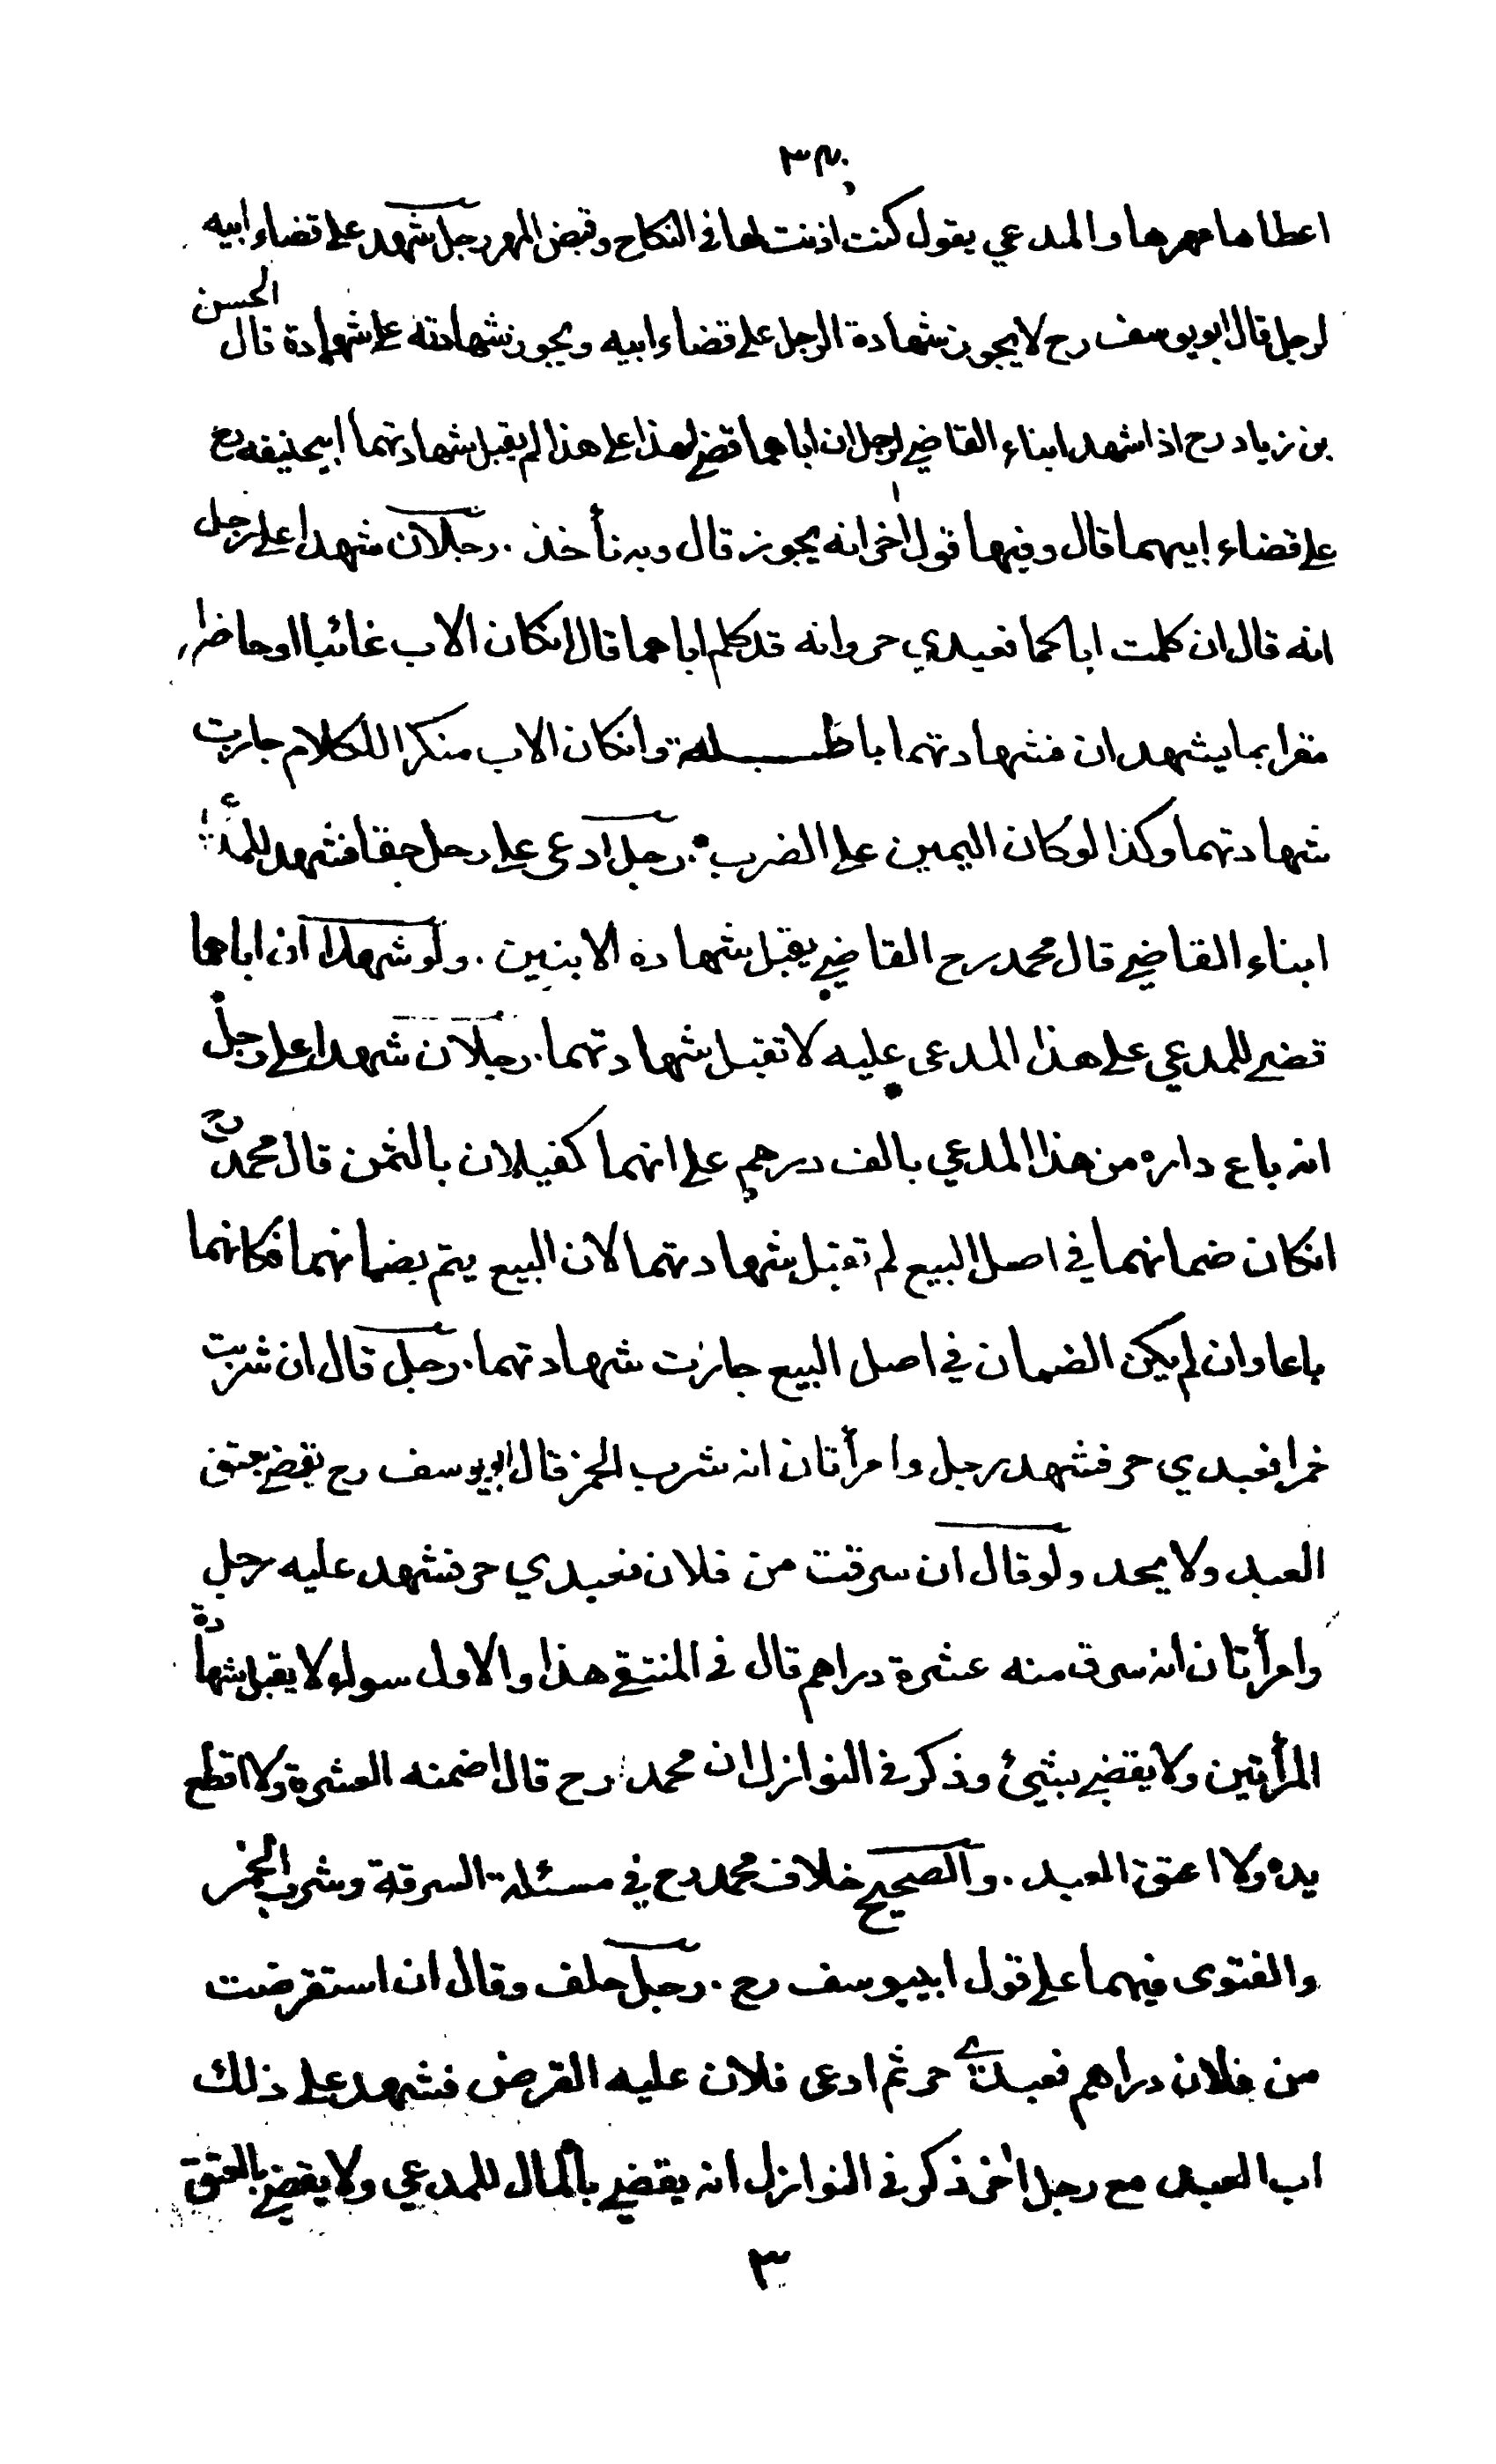 اعطاها مهرها والمدعي يقول كنت اذنت لها في النكاح وقبض المهر رجل شهد على قضاء ابيه
لرجل قال ابو يوسف رح لا يجوز شهادة الرجل على قضاء ابيه ويجوز شهادته على شهادة قال الحسن
بن زياد رح اذا شهد ابناء القاضي لرجل ان اباهما قضى لهذا على هذا لم يقبل شهادتهما ابيحنيفه رح
على قضاء ابيهما قال وفيها قول اخر انه يجوز قال وبه نأخذ . رجلان شهدا على رجل
انه قال ان كلمت اباكما فعبدي حر وانه قد كلم اباهما قال انكان الاب غائبا او حاضرا
مقرا بما يشهدان فشهادتهما باطلة وانكان الاب منكرا للكلام جازت
شهادتهما وكذا لو كان اليمين على الضرب . رجل ادعى على رجل حقا فشهد للمدعي
ابناء القاضي قال محمد رح القاضي يقبل شهادة الابنين . ولو شهدا ان اباهما
قضى للمدعي على هذا المدعى عليه لا تقبل شهادتهما . رجلان شهدا على رجل
انه باع داره من هذا المدعي بالف درهم على انهما كفيلان بالثمن قال محمد رح
انكان ضمانهما في اصل البيع لم تقبل شهادتهما لان البيع يتم بضمانهما فكانهما
باعا وان لم يكن الضمان في اصل البيع جازت شهادتهما . رجل قال ان شربت
خمرا فعبدي حر فشهد رجل وامرأتان انه شرب الخمر قال ابو يوسف رح يقضى بعتق
العبد ولا يحد ولو قال ان سرقت من فلان فعبدي حر فشهد عليه رجل
وامرأتان انه سرق منه عشرة دراهم قال في المنتقى هذا والاول سواء لا يقبل شهادة
المرأتين ولا يقضى بشيئ وذكر في النوازل ان محمد رح قال اضمنه العشرة ولا اقطع
يده ولا اعتق العبد . والصحيح خلاف محمد رح في مسئلة السرقة وشرب الخمر
والفتوى فيهما على قول ابيوسف رح . رجل حلف وقال ان استقرضت
من فلان دراهم فعبدي حر ثم ادعى فلان عليه القرض فشهد على ذلك
اب العبد مع رجل اخر ذكر في النوازل انه يقضى بالمال للمدعي ولا يقضى بالعتق
٣